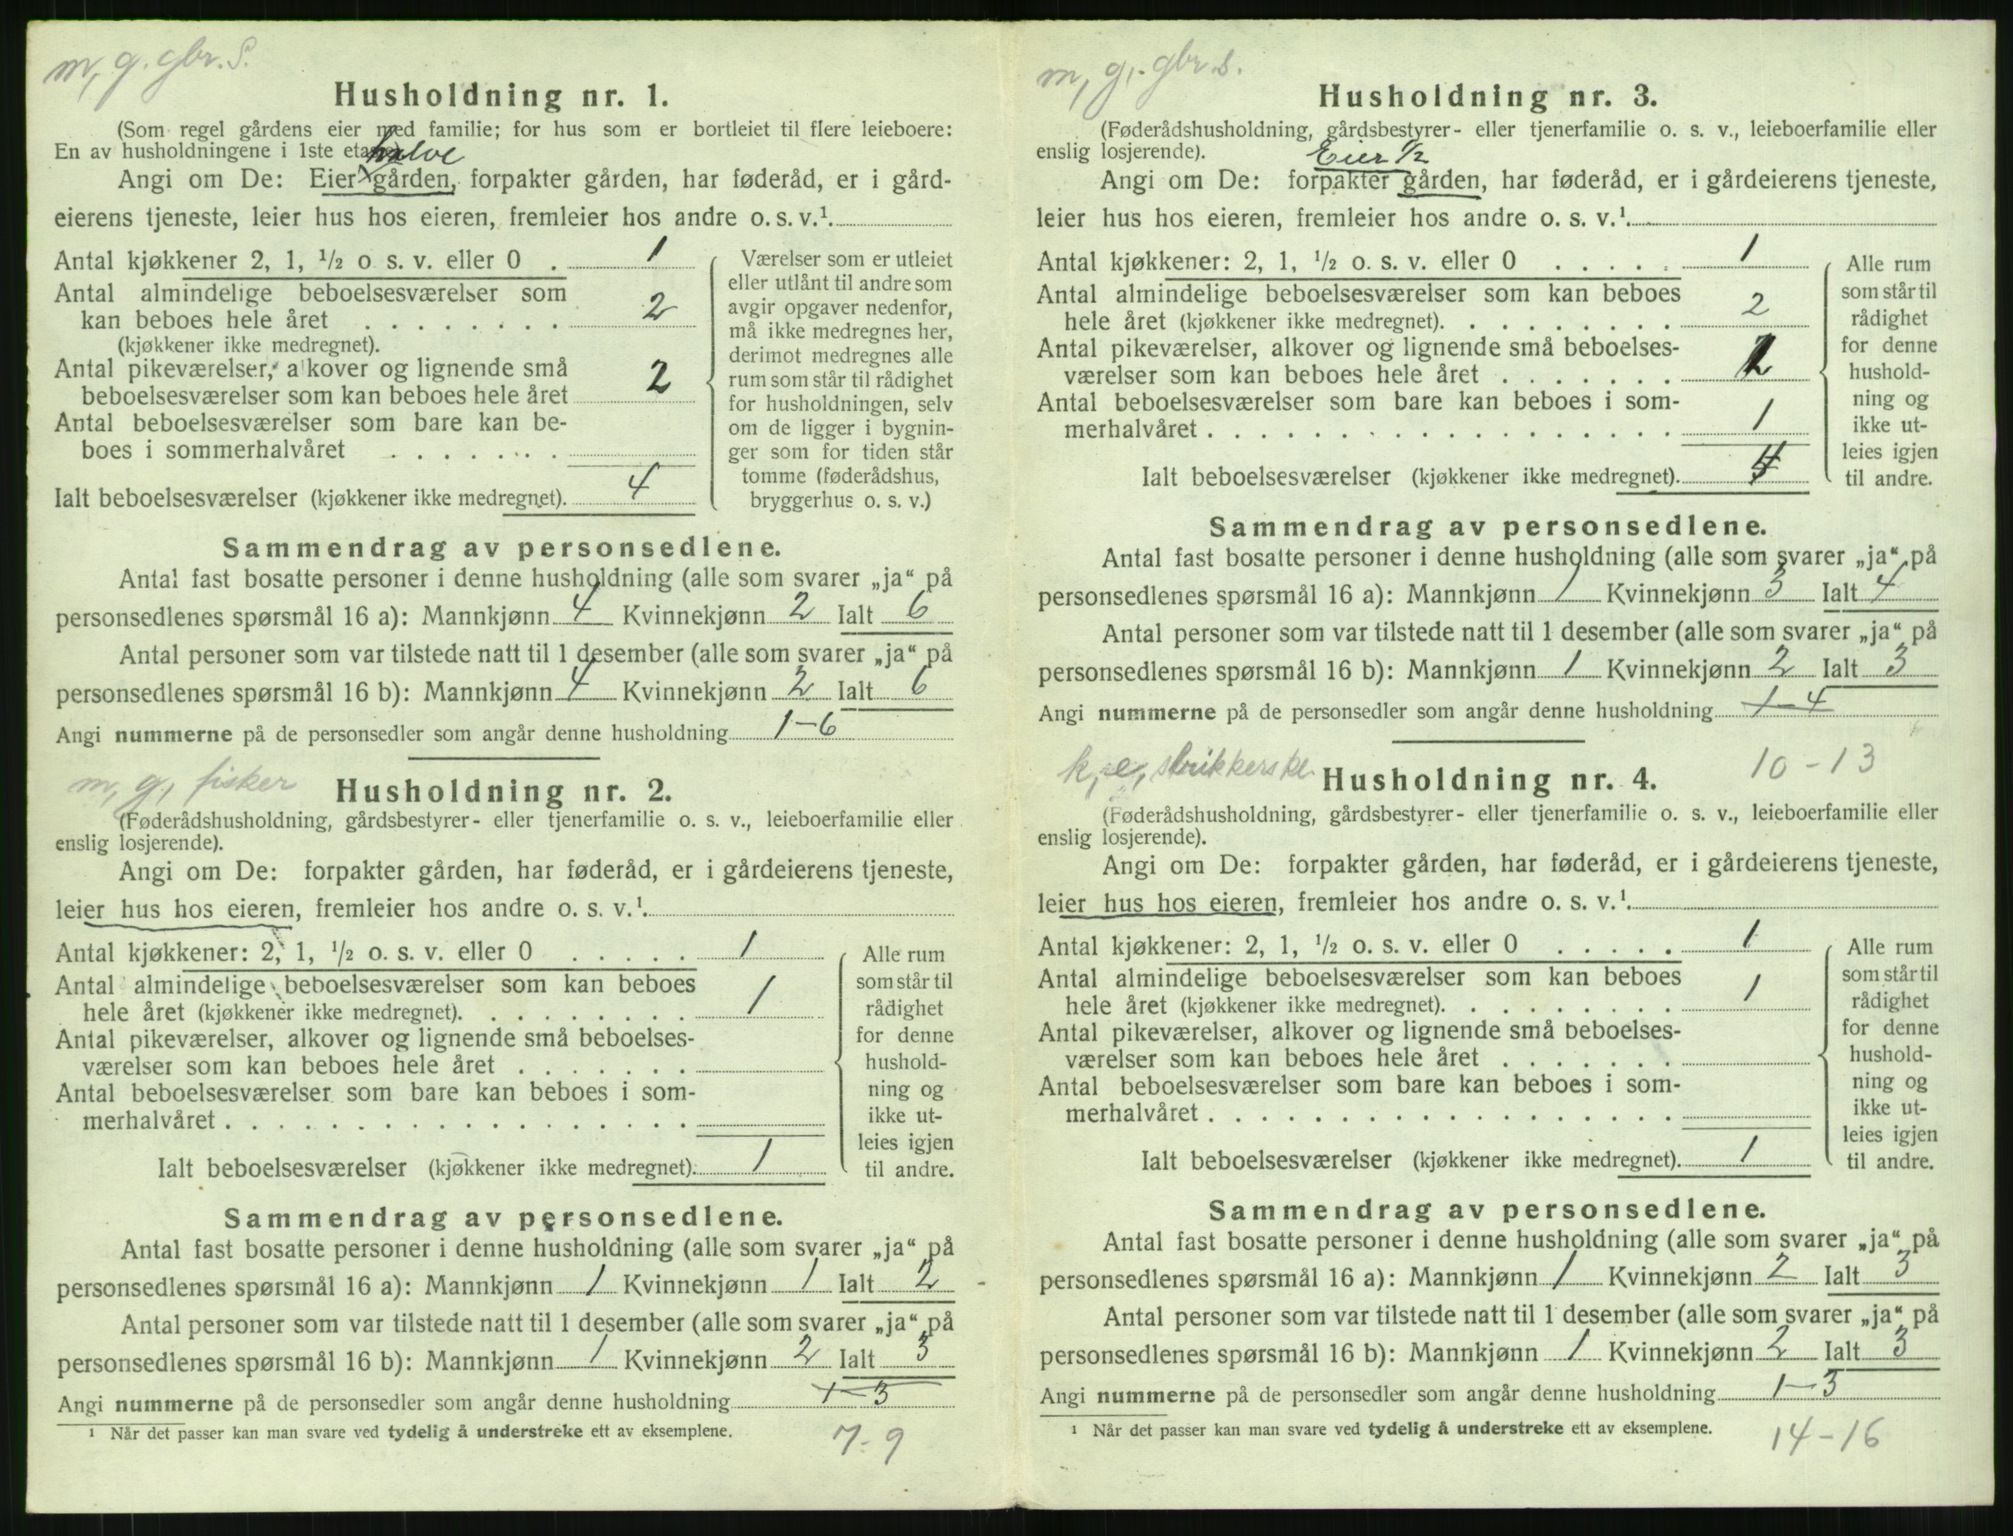 m, g. gbr. S.
Husholdning nr. 1.
(Som regel gårdens eier med familie; for hus som er bortleiet til flere leieboere:
En av husholdningene i 1ste etage).
halve
Angi om De: Eier gården, forpakter gården, har føderåd, er i gård-
eierens tjeneste, leier hus hos eieren, fremleier hos andre o. s. v.¹.
Antal kjøkkener 2, 1, ½ o s. v. eller 0 . 1
Antal almindelige beboelsesværelser som
kan beboes hele året . . . . . . . . 2
(kjøkkener ikke medregnet).
Antal pikeværelser, alkover og lignende små
beboelsesværelser som kan beboes hele året 2
Antal beboelsesværelser som bare kan be-
boes i sommerhalvåret . . . . . . .
Ialt beboelsesværelser (kjøkkener ikke medregnet). 4
Værelser som er utleiet
eller utlånt til andre som
avgir opgaver nedenfor,
må ikke medregnes her,
derimot medregnes alle
rum som står til rådighet
for husholdningen, selv
om de ligger i bygnin-
ger som for tiden står
tomme (føderådshus,
bryggerhus o. s. v.)
Sammendrag av personsedlene.
Antal fast bosatte personer i denne husholdning (alle som svarer „ja“ på
personsedlenes spørsmål 16 a): Mannkjønn 4 Kvinnekjønn 2 Ialt 6
Antal personer som var tilstede natt til 1 desember (alle som svarer „ja“ på
personsedlenes spørsmål 16 b): Mannkjønn 4 Kvinnekjønn 2 Ialt 6
Angi nummerne på de personsedler som angår denne husholdning 1-6
m, g, fisker
Husholdning nr. 2.
(Føderådshusholdning, gårdsbestyrer- eller tjenerfamilie o. s. v., leieboerfamilie eller
enslig losjerende).
Angi om De: forpakter gården, har føderåd, er i gårdeierens tjeneste,
leier hus hos eieren, fremleier hos andre o. s. v.¹.
Antal kjøkkener: 2, 1, ½ o. s. v. eller 0 . . . . . 1
Antal almindelige beboelsesværelser som kan beboes
hele året (kjøkkener ikke medregnet). . . . . . . . . 1
Antal pikeværelser, alkover og lignende små beboelses-
værelser som kan beboes hele året . . . . . . .
Antal beboelsesværelser som bare kan beboes i som-
merhalvåret . . . . . . . . . . . . . . . . . .
Ialt beboelsesværelser (kjøkkener ikke medregnet). 1
Alle rum
som står til
rådighet
for denne
hushold-
ning og
ikke ut-
leies igjen
til andre.
Sammendrag av personsedlene.
Antal fast bosatte personer i denne husholdning (alle som svarer „ja“ på
personsedlenes spørsmål 16 a): Mannkjønn 1 Kvinnekjønn 1 Ialt 2
Antal personer som var tilstede natt til 1 desember (alle som svarer „ja“ på
personsedlenes spørsmål 16 b): Mannkjønn 1 Kvinnekjønn 2 Ialt 3
Angi nummerne på de personsedler som angår denne husholdning 1-3
¹ Når det passer kan man svare ved tydelig å understreke ett av eksemplene.
7-9
m, g, gbr. s.
Husholdning nr. 3.
(Føderådshusholdning, gårdsbestyrer- eller tjenerfamilie o. s. v., leieboerfamilie eller
enslig losjerende).
Eier 1/2
Angi om De: forpakter gården, har føderåd, er i gårdeierens tjeneste,
leier hus hos eieren, fremleier hos andre o. s. v.¹.
Antal kjøkkener: 2, 1, ½ o. s. v. eller 0 . . . . . 1
Antal almindelige beboelsesværelser som kan beboes
hele året (kjøkkener ikke medregnet). . . . . . . . . 2
Antal pikeværelser, alkover og lignende små beboelses-
værelser som kan beboes hele året . . . . . . . 1
Antal beboelsesværelser som bare kan beboes i som-
merhalvåret . . . . . . . . . . . . . . . . . . 1
Ialt beboelsesværelser (kjøkkener ikke medregnet). 4
Alle rum
som står til
rådighet
for denne
hushold-
ning og
ikke ut-
leies igjen
til andre.
Sammendrag av personsedlene.
Antal fast bosatte personer i denne husholdning (alle som svarer „ja“ på
personsedlenes spørsmål 16 a): Mannkjønn 1 Kvinnekjønn 3 Ialt 4
Antal personer som var tilstede natt til 1 desember (alle som svarer „ja“ på
personsedlenes spørsmål 16 b): Mannkjønn 1 Kvinnekjønn 2 Ialt 3
Angi nummerne på de personsedler som angår denne husholdning 1-4
10-13
k, e, strikkerske
Husholdning nr. 4.
(Føderådshusholdning, gårdsbestyrer- eller tjenerfamilie o. s. v., leieboerfamilie eller
enslig losjerende).
Angi om De: forpakter gården, har føderåd, er i gårdeierens tjeneste,
leier hus hos eieren, fremleier hos andre o. s. v.¹.
Antal kjøkkener: 2, 1, ½ o. s. v. eller 0 . . . . . 1
Antal almindelige beboelsesværelser som kan beboes
hele året (kjøkkener ikke medregnet). . . . . . . . . 1
Antal pikeværelser, alkover og lignende små beboelses-
værelser som kan beboes hele året . . . . . . .
Antal beboelsesværelser som bare kan beboes i som-
merhalvåret . . . . . . . . . . . . . . . . . .
Ialt beboelsesværelser (kjøkkener ikke medregnet). 1
Alle rum
som står til
rådighet
for denne
hushold-
ning og
ikke ut-
leies igjen
til andre.
Sammendrag av personsedlene.
Antal fast bosatte personer i denne husholdning (alle som svarer „ja“ på
personsedlenes spørsmål 16 a): Mannkjønn 1 Kvinnekjønn 2 Ialt 3
Antal personer som var tilstede natt til 1 desember (alle som svarer „ja“ på
personsedlenes spørsmål 16 b): Mannkjønn 1 Kvinnekjønn 2 Ialt 3
Angi nummerne på de personsedler som angår denne husholdning 1-3
¹ Når det passer kan man svare ved tydelig å understreke ett av eksemplene.
14-16